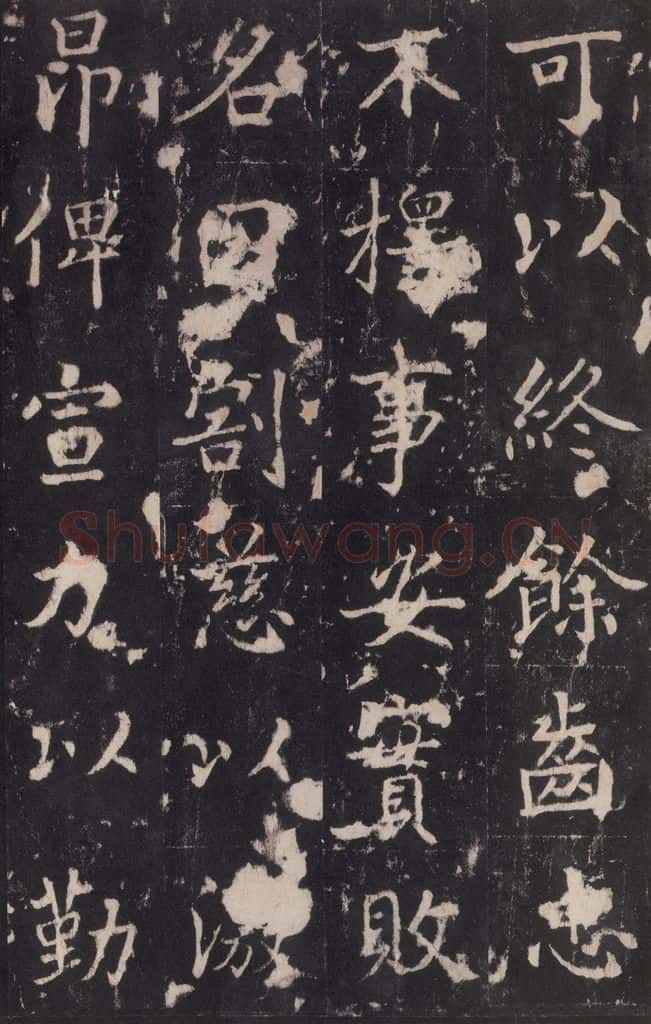 可以終餘齒忠
不擇事安實敗
名因割慈以激
昂俾宣力以勤
Shufawang.CN